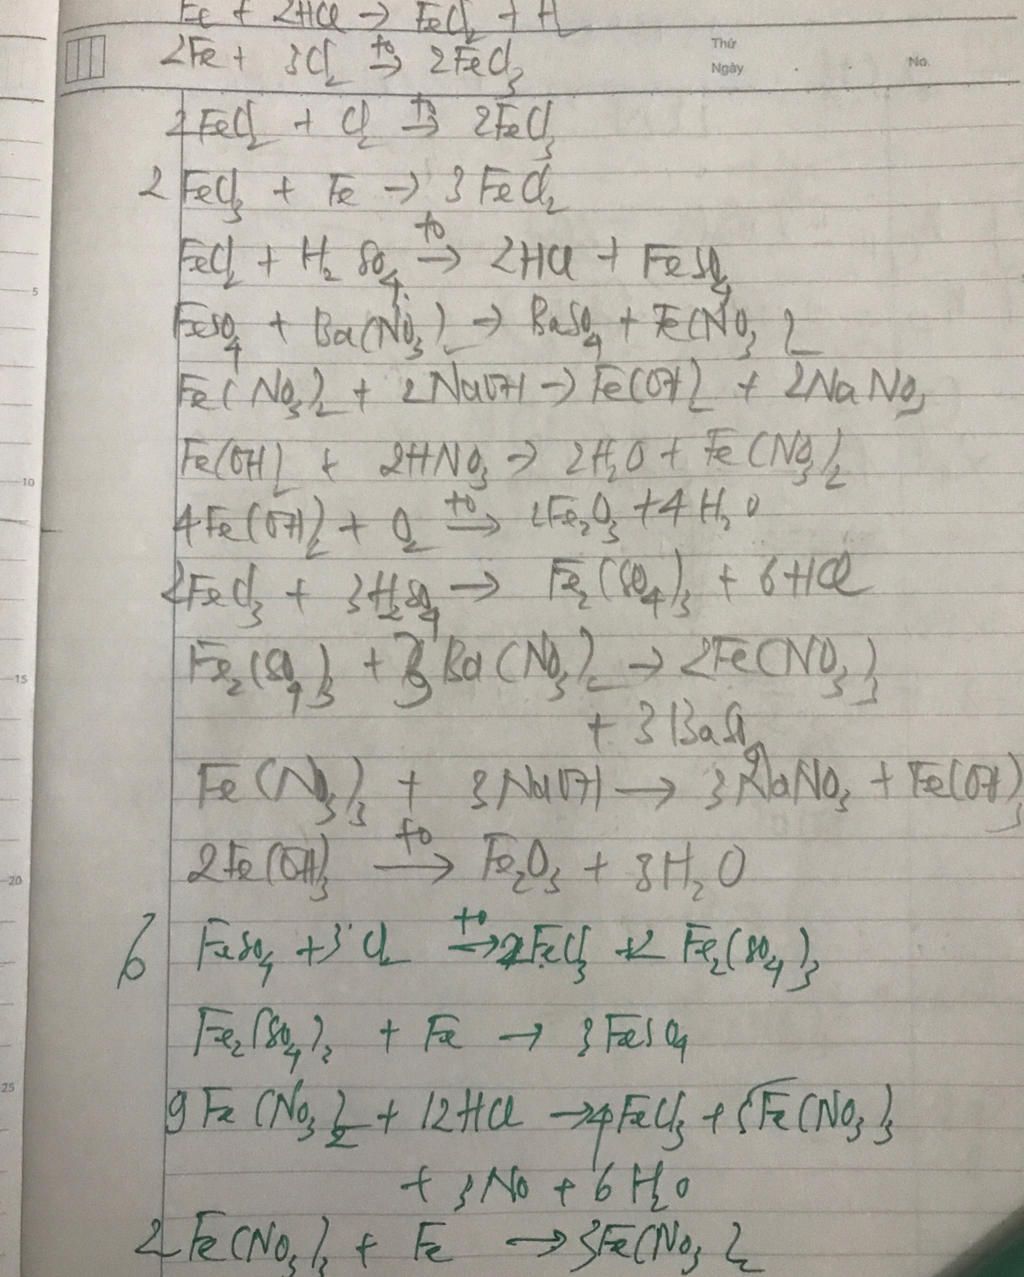 Fe + 2HCl → FeCl2 + H
2Fe + 3Cl2 →(to) 2FeCl3
Thứ
Ngày
No.
2FeCl2 + Cl2 →(to) 2FeCl3
2 FeCl3 + Fe → 3FeCl2
5
FeCl2 + H2SO4 →(to) 2HCl + FeSO4
FeSO4 + Ba(NO3)2 → BaSO4 + Fe(NO3)2
Fe(NO3)2 + 2NaOH → Fe(OH)2 + 2NaNO3
10
Fe(OH)2 + 2HNO3 → 2H2O + Fe(NO3)2
4Fe(OH)2 + O2 →(to) 2Fe2O3 + 4H2O
2FeCl3 + 3H2SO4 → Fe2(SO4)3 + 6HCl
15
Fe2(SO4)3 + 3Ba(NO3)2 → 2Fe(NO3)3
+ 3BaSO4
Fe(NO3)3 + 3NaOH → 3NaNO3 + Fe(OH)3
20
2Fe(OH)3 →(to) Fe2O3 + 3H2O
6 FeSO4 + 3Cl2 →(to) 2FeCl3 + 2Fe2(SO4)3
Fe2(SO4)3 + Fe → 3FeSO4
25
9Fe(NO3)2 + 12HCl → 4FeCl3 + 5Fe(NO3)3
+ 3NO + 6H2O
2Fe(NO3)3 + Fe → 3Fe(NO3)2